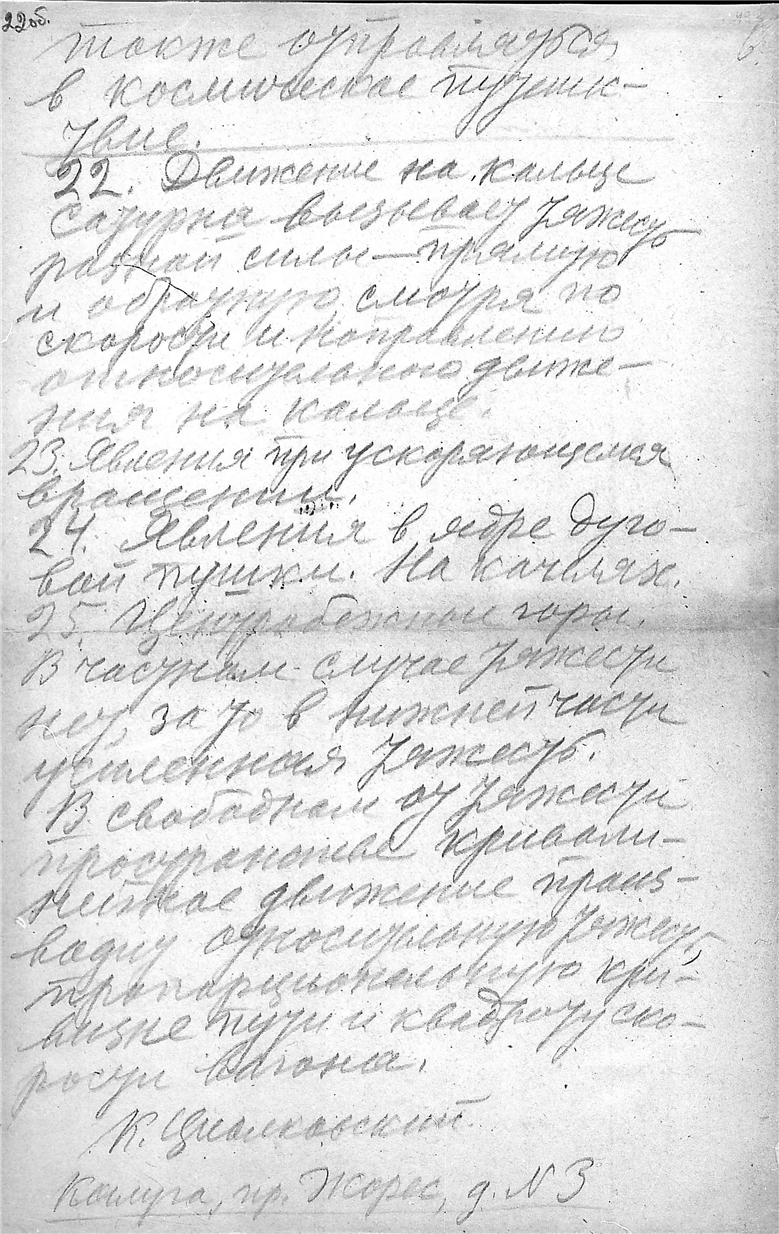 22об.
также отправляться
в космическое путеше-
ствие.
22. Движение на кольце
Сатурна вызывает тяжесть
разной силы — прямую
и обратную, смотря по
скорости и направлению
относительного движе-
ния на кольце.
23. Явления при ускоряющемся
вращении.
24. Явления в ядре дуго-
вой пушки. На качелях.
25. Центробежные горы.
В частном случае тяжести
нет, за то в нижней части
усиленная тяжесть.
В свободном от тяжести
пространстве криволи-
нейное движение произ-
водит относительную тяжесть,
пропорциональную кри-
визне пути и квадрату ско-
рости вагона.
К. Циолковский.
Калуга, пр. Жорес, д. N 3